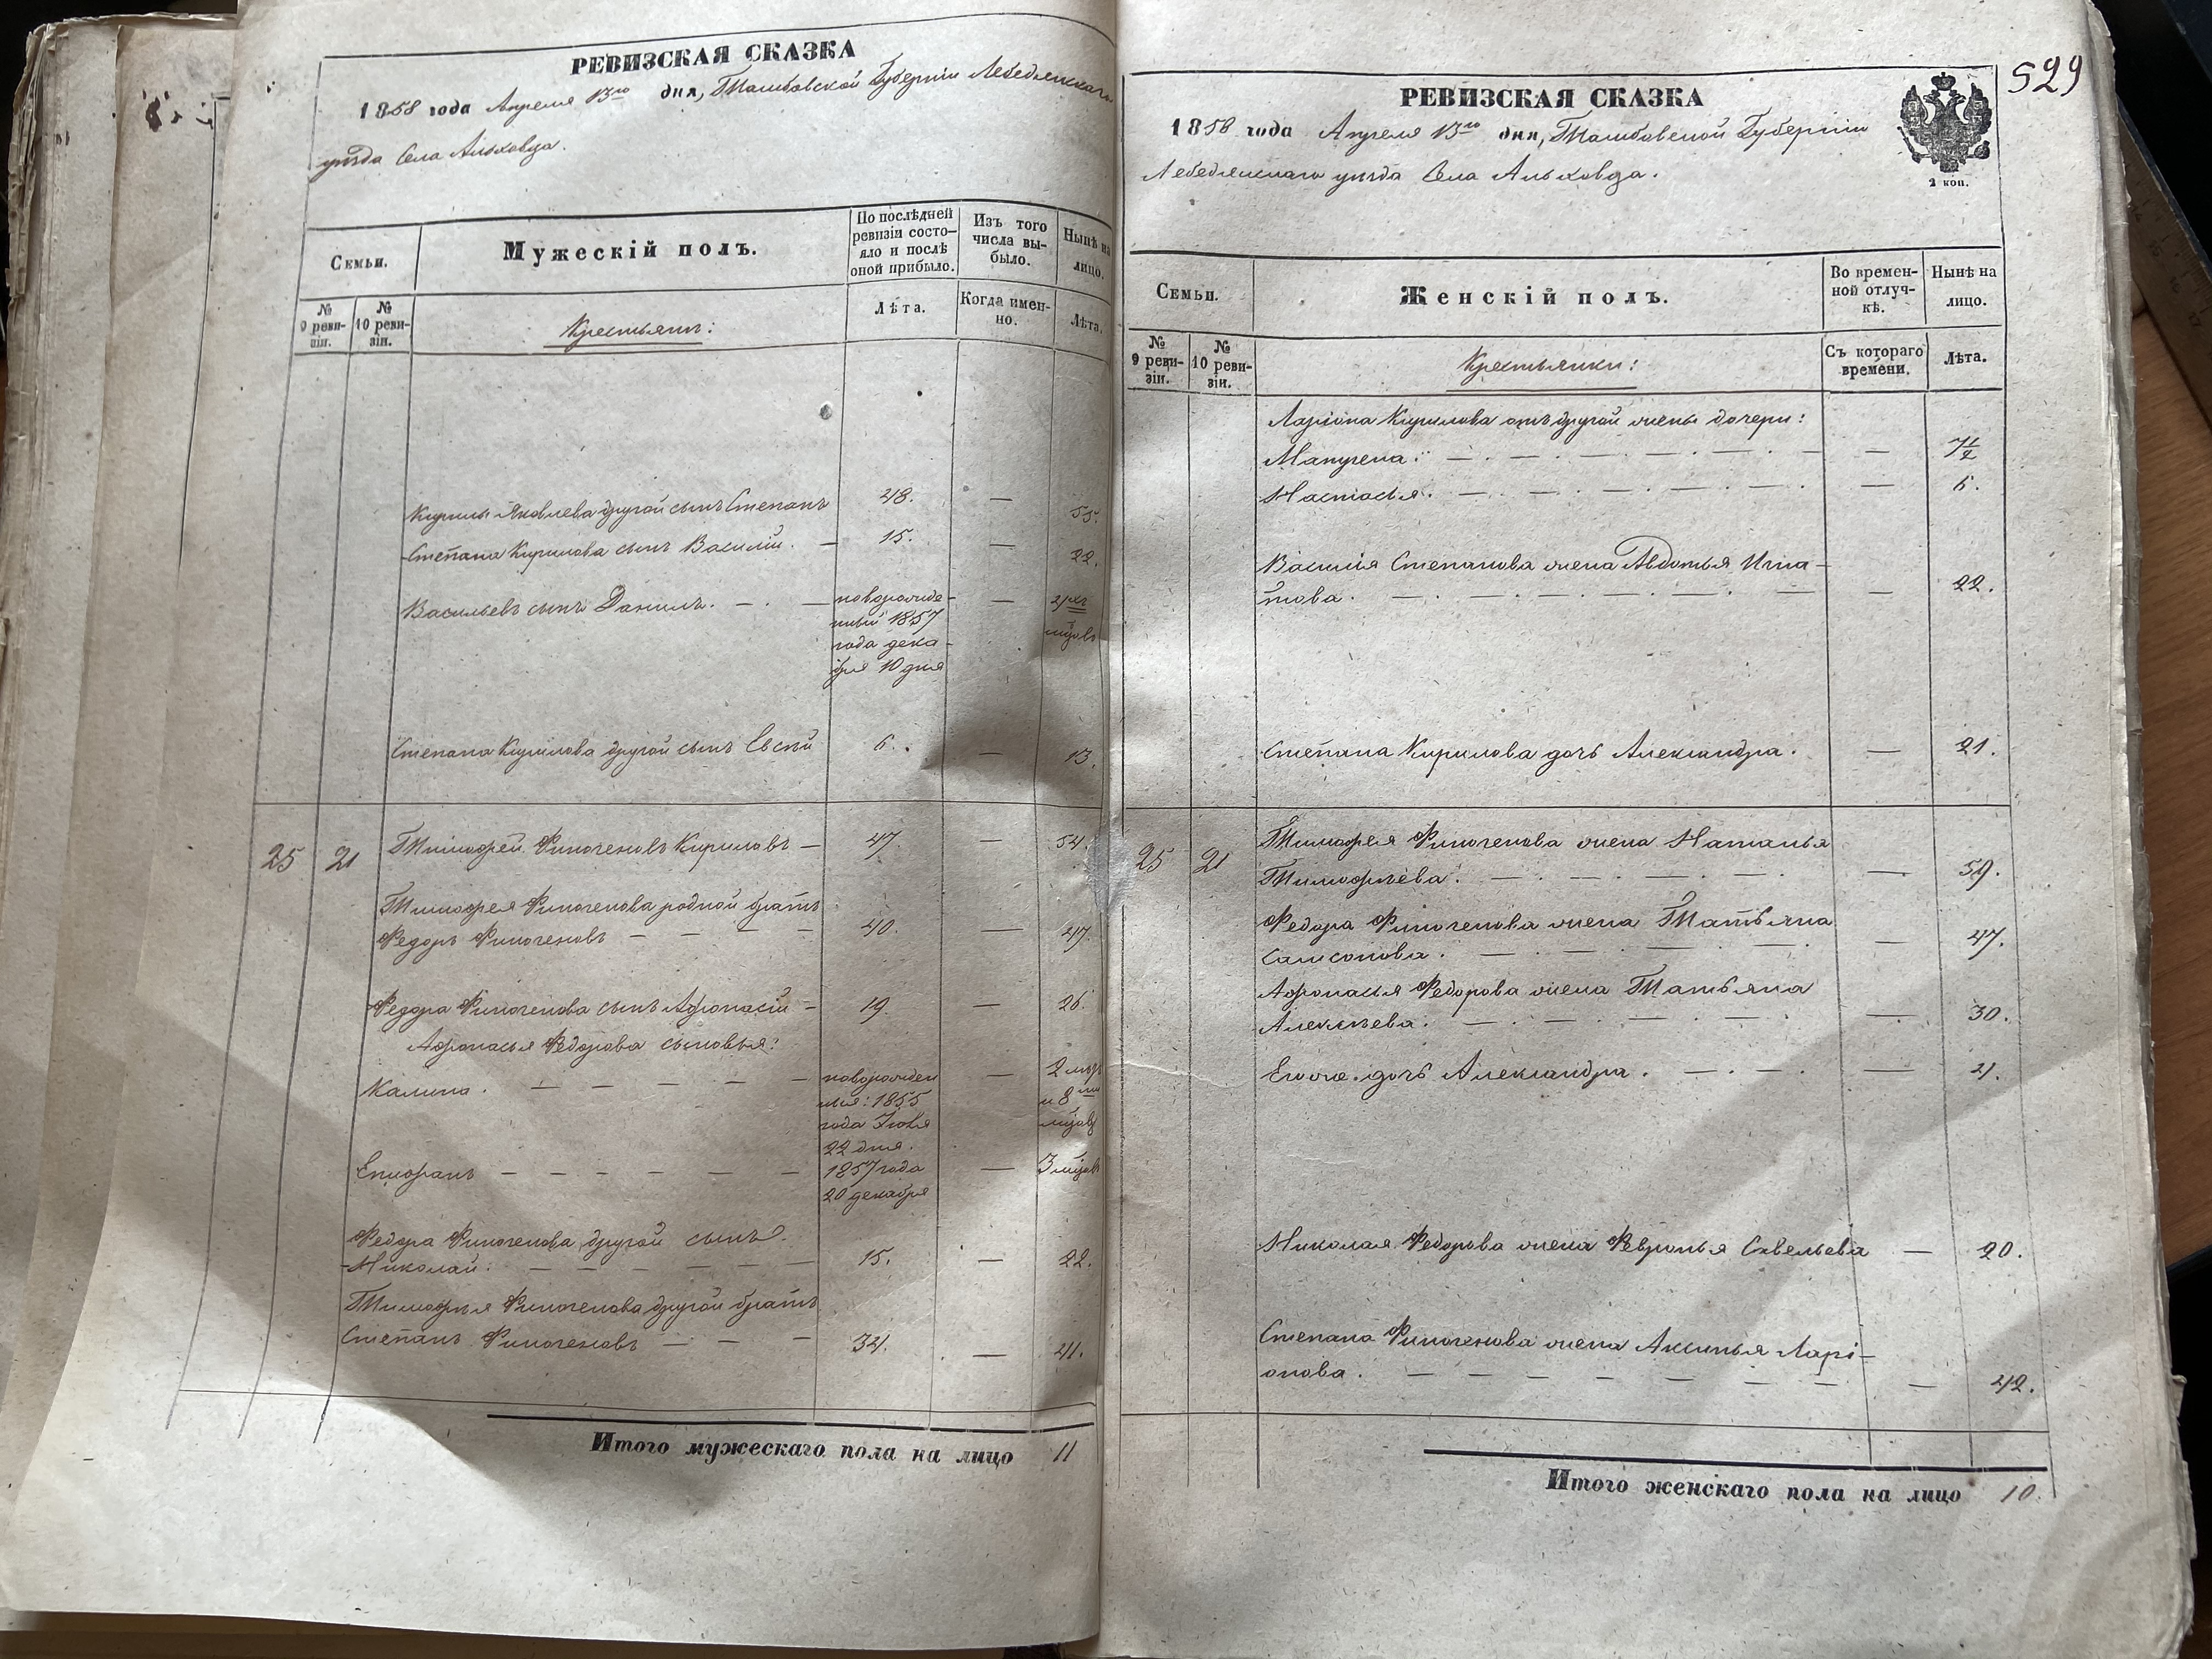 РЕВИЗСКАЯ СКАЗКА
1858 года Апреля 13го дня, Тамбовской Губерніи Лебедянскаго
уѣзда Села Ольховца.
Семьи.
Мужескій полъ.
По послѣдней
ревизіи состо-
яло и послѣ
оной прибыло.
Изъ того
числа вы-
было.
Нынѣ на
лицо.
№
9 реви-
зіи.
№
10 реви-
зіи.
Крестьянъ:
Лѣта.
Когда имен-
но.
Лѣта.
Кирилы Яковлева другой сынъ Степанъ 48. — 55.
Степана Кирилова сынъ Василій. — 15. — 22.
Васильевъ сынъ Данилъ. — . — новорожде-
ный 1857
года дека-
бря 10 дня
— 4хъ
мѣсяв
Степана Кирилова другой сынъ Евсѣй 6. — 13.
25 21 Тимофей Финогеновъ Кириловъ — 47. — 54.
Тимофея Финогенова родной братъ
Федоръ Финогеновъ — — — — 40. — 47.
Федора Финогенова сынъ Афонасій — 19. — 26.
Афонасья Федорова сыновья:
Калина. — — — — — новорожден
ыя: 1855
года Іюля
22 дня.
— 2 лѣтъ
и 8ми
мѣсяв
Епифанъ — — — — — 1857 года
20 декабря
— 3 мѣсяв
Федора Финогенова другой сынъ
Николай: — — — — — 15. — 22.
Тимофѣя Финогенова другой братъ
Степанъ Финогеновъ — — — 34. — 41.
Итого мужескаго пола на лицо 11
529
РЕВИЗСКАЯ СКАЗКА
1858 года Апреля 13го дня, Тамбовской Губерніи
Лебедянскаго уѣзда Села Ольховца.
2 коп.
Семьи.
Женскій полъ.
Во времен-
ной отлуч-
кѣ.
Нынѣ на
лицо.
№
9 реви-
зіи.
№
10 реви-
зіи.
Крестьянки:
Съ котораго
времени.
Лѣта.
Ларіона Кирилова отъ другой жены дочери:
— 7 1/2
Настасья. — . — . — . — . — . — — 5.
Василія Степанова жена Авдотья Ипа-
това. — . — . — . — . — — 22.
Степана Кирилова дочь Александра. — 21.
25 21 Тимофея Финогенова жена Наталья
Тимофѣева. — . — . — . — . — — 59.
Федора Финогенова жена Татьяна
Самсонова. — . — . — . — — 47.
Афонасья Федорова жена Татьяна
Алексѣева. — . — . — . — . — — 30.
Егоже дочь Александра. — . — . — — 4.
Николая Федорова жена Февронья Савельева — 20.
Степана Финогенова жена Аксинья Ларі-
онова. — — — — — — — — — 42.
Итого женскаго пола на лицо 10.